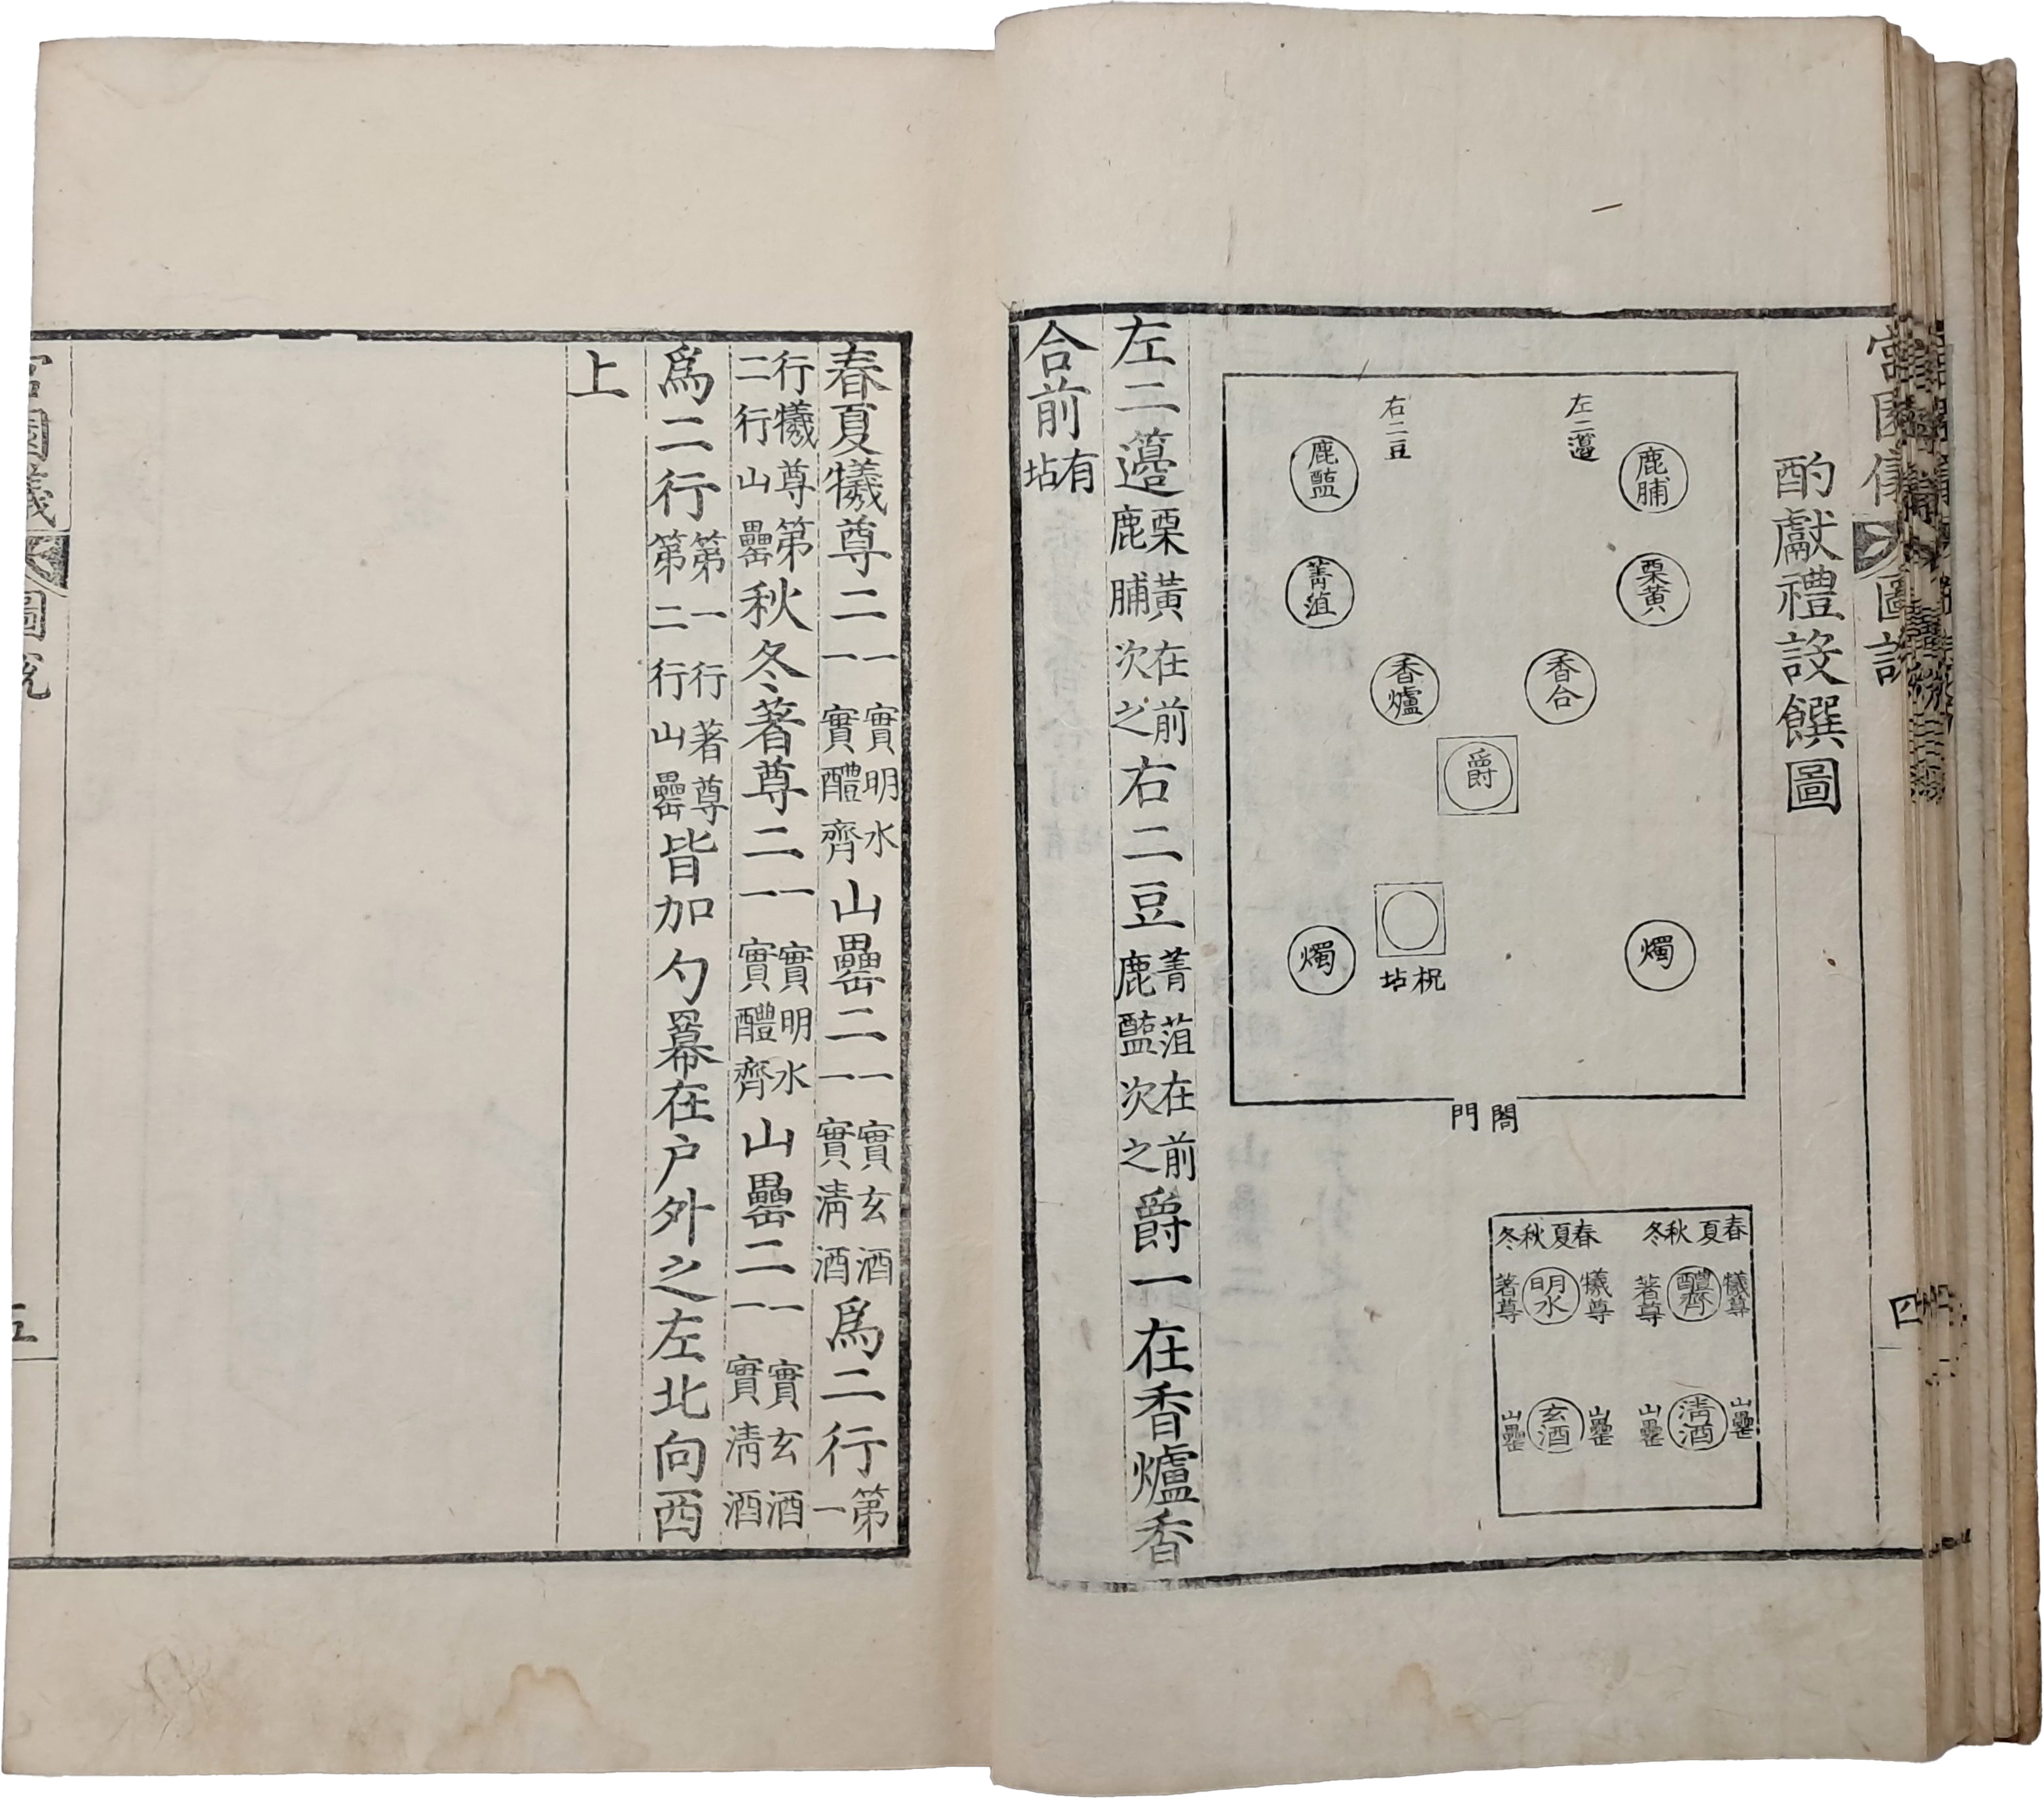 宮園儀 圖說
四
酌獻禮設饌圖
左二籩
右二豆
鹿脯
鹿醢
栗黃
菁菹
香合
香爐
爵
燭
祝坫
燭
閤門
春夏 秋冬
犧尊 醴齊 著尊
春夏 秋冬
犧尊 明水 著尊
山罍 淸酒 山罍
山罍 玄酒 山罍
左二籩栗黃在前鹿脯次之右二豆菁菹在前鹿醢次之爵一在香爐香
合前有坫
春夏犧尊二一實明水一實醴齊山罍二一實玄酒一實淸酒爲二行第一
行犧尊第二行山罍秋冬著尊二一實明水一實醴齊山罍二一實玄酒一實淸酒
爲二行第一行著尊第二行山罍皆加勺羃在戶外之左北向西
上
宮園儀 圖說
五